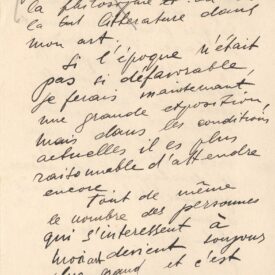 la philosophie et
la but littérature dans
mon art.
Si l'époque n'était
pas si défavorable,
je ferais maintenant
une grande exposition,
mais dans les conditions
actuelles il es plus
raisonnable d'attendre
encore.
Tout de même
le nombre des personnes
qui s'interessent à
mon art devient toujours
plus grand et c'est